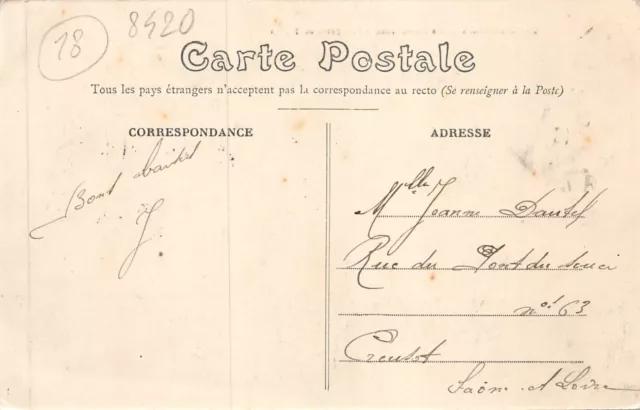 18
8420
Carte Postale
Tous les pays étrangers n'acceptent pas la correspondance au recto (Se renseigner à la Poste)
CORRESPONDANCE
ADRESSE
J
Mlle Jeanne
Rue du Pont du
no 63
Creusot
Saône et Loire